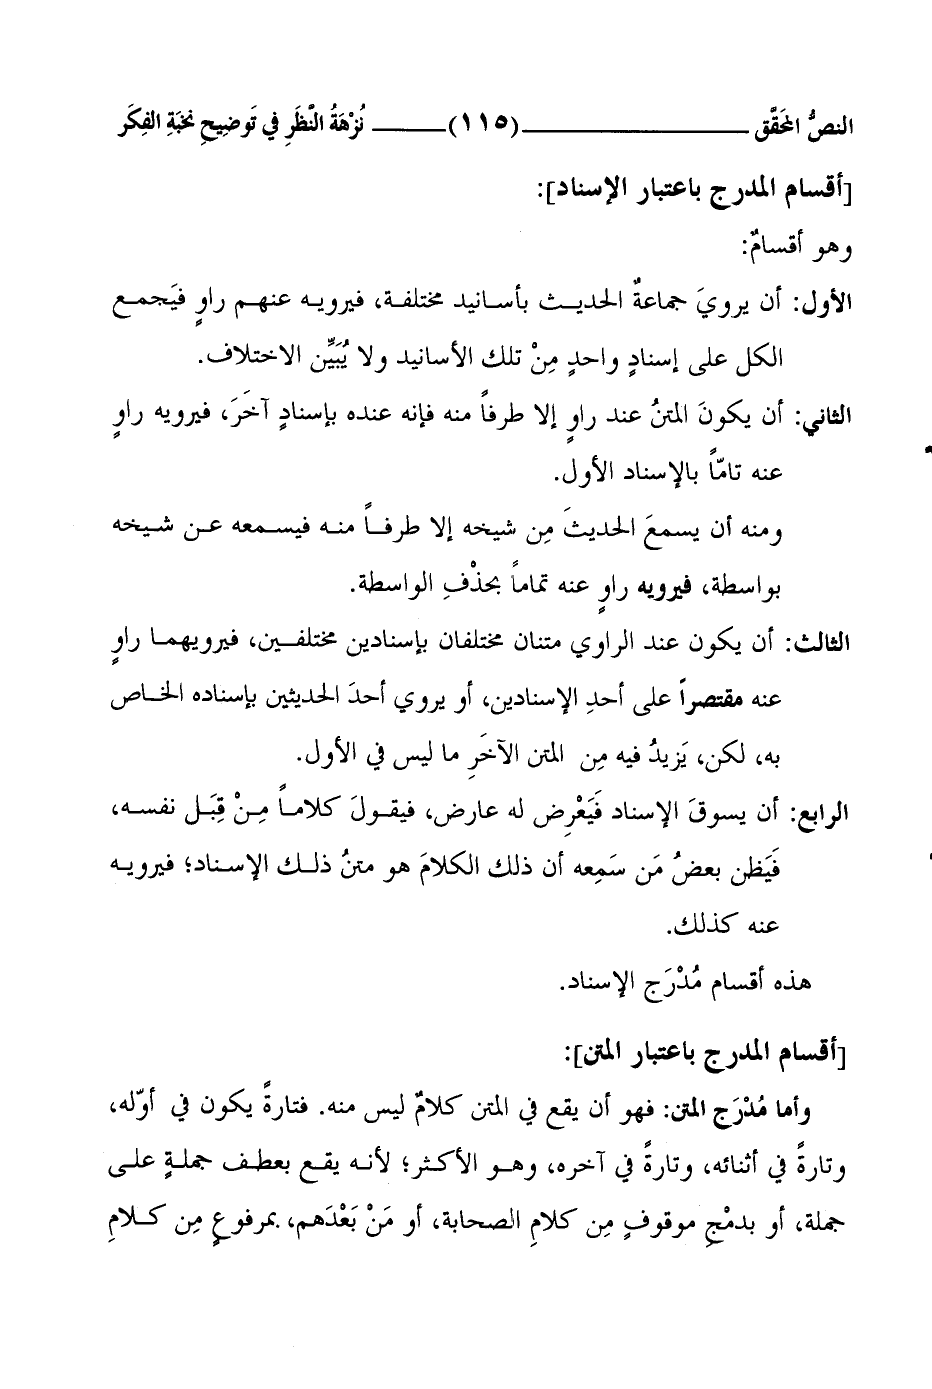 النصُّ المحَقَّق ـــــــــــــ (١١٥) ـــــــــــــ نُزْهَةُ النَّظَرِ في تَوضِيحِ نخبَةِ الفِكَر
[أقسام المدرج باعتبار الإسناد]:
وهو أقسامٌ:
الأول: أن يرويَ جماعةٌ الحديث بأسانيد مختلفة، فيرويه عنهم راوٍ فيَجمع
الكل على إسنادٍ واحدٍ مِنْ تلك الأسانيد ولا يُبَيِّن الاختلاف.
الثاني: أن يكونَ المتنُ عند راوٍ إلا طرفاً منه فإنه عنده بإسنادٍ آخَرَ، فيرويه راوٍ
عنه تامّاً بالإسناد الأول.
ومنه أن يسمعَ الحديثَ مِن شيخه إلا طرفاً منه فيسمعه عن شيخه
بواسطة، فيرويه راوٍ عنه تماماً بحذْفِ الواسطة.
الثالث: أن يكون عند الراوي متنان مختلفان بإسنادين مختلفين، فيرويهما راوٍ
عنه مقتصراً على أحدِ الإسنادين، أو يروي أحدَ الحديثين بإسناده الخاص
به، لكن، يَزيدُ فيه مِن المتن الآخَرِ ما ليس في الأول.
الرابع: أن يسوقَ الإسناد فَيَعْرِض له عارض، فيقولَ كلاماً مِنْ قِبَل نفسه،
فَيَظن بعضُ مَن سَمِعه أن ذلك الكلامَ هو متنُ ذلك الإسناد؛ فيرويه
عنه كذلك.
هذه أقسام مُدْرَج الإسناد.
[أقسام المدرج باعتبار المتن]:
وأما مُدْرَج المتن: فهو أن يقع في المتن كلامٌ ليس منه. فتارةً يكون في أوّله،
وتارةً في أثنائه، وتارةً في آخره، وهو الأكثر؛ لأنه يقع بعطف جملةٍ على
جملة، أو بدمْجِ موقوفٍ مِن كلامِ الصحابة، أو مَنْ بَعْدَهم، بمرفوعٍ مِن كلامِ